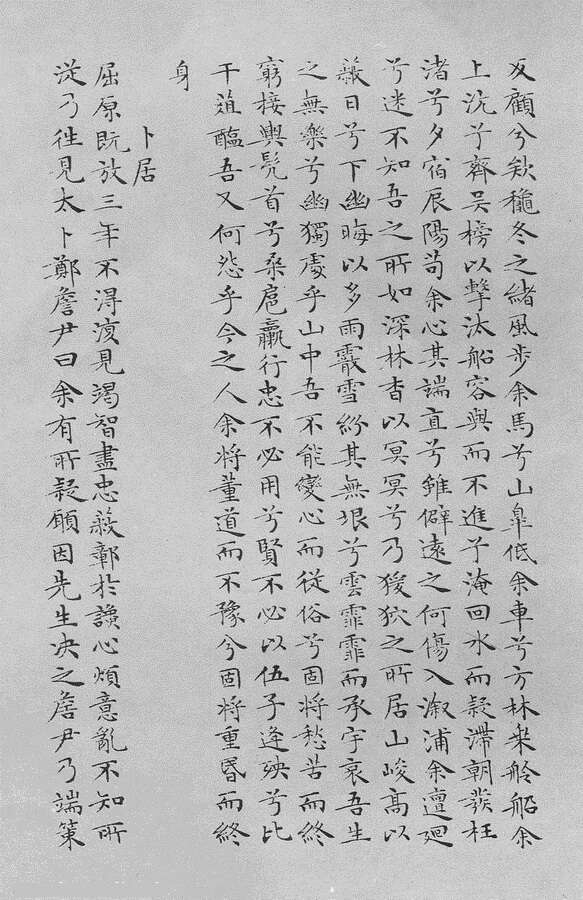 反顧兮欸穐冬之緒風步余馬兮山皐低余車兮方林乗舲船余
上沅兮齊吴榜以擊汰船容與而不進兮淹回水而疑滯朝發枉
渚兮夕宿辰陽茍余心其端直兮雖僻逺之何傷入溆浦余儃廻
兮迷不知吾之所如深林杳以冥冥兮乃猨狖之所居山峻高以
蔽日兮下幽晦以多雨霰雪紛其無垠兮雲霏霏而承宇哀吾生
之無樂兮幽獨處乎山中吾不能變心而從俗兮固将愁苦而終
窮接輿髠首兮桑扈臝行忠不必用兮賢不必以伍子逢殃兮比
干葅醢吾又何怨乎今之人余将董道而不豫兮固将重昏而終
身
卜居
屈原既放三年不淂復見竭智盡忠蔽鄣於讒心煩意亂不知所
從乃往見太卜鄭詹尹曰余有所疑願因先生决之詹尹乃端策